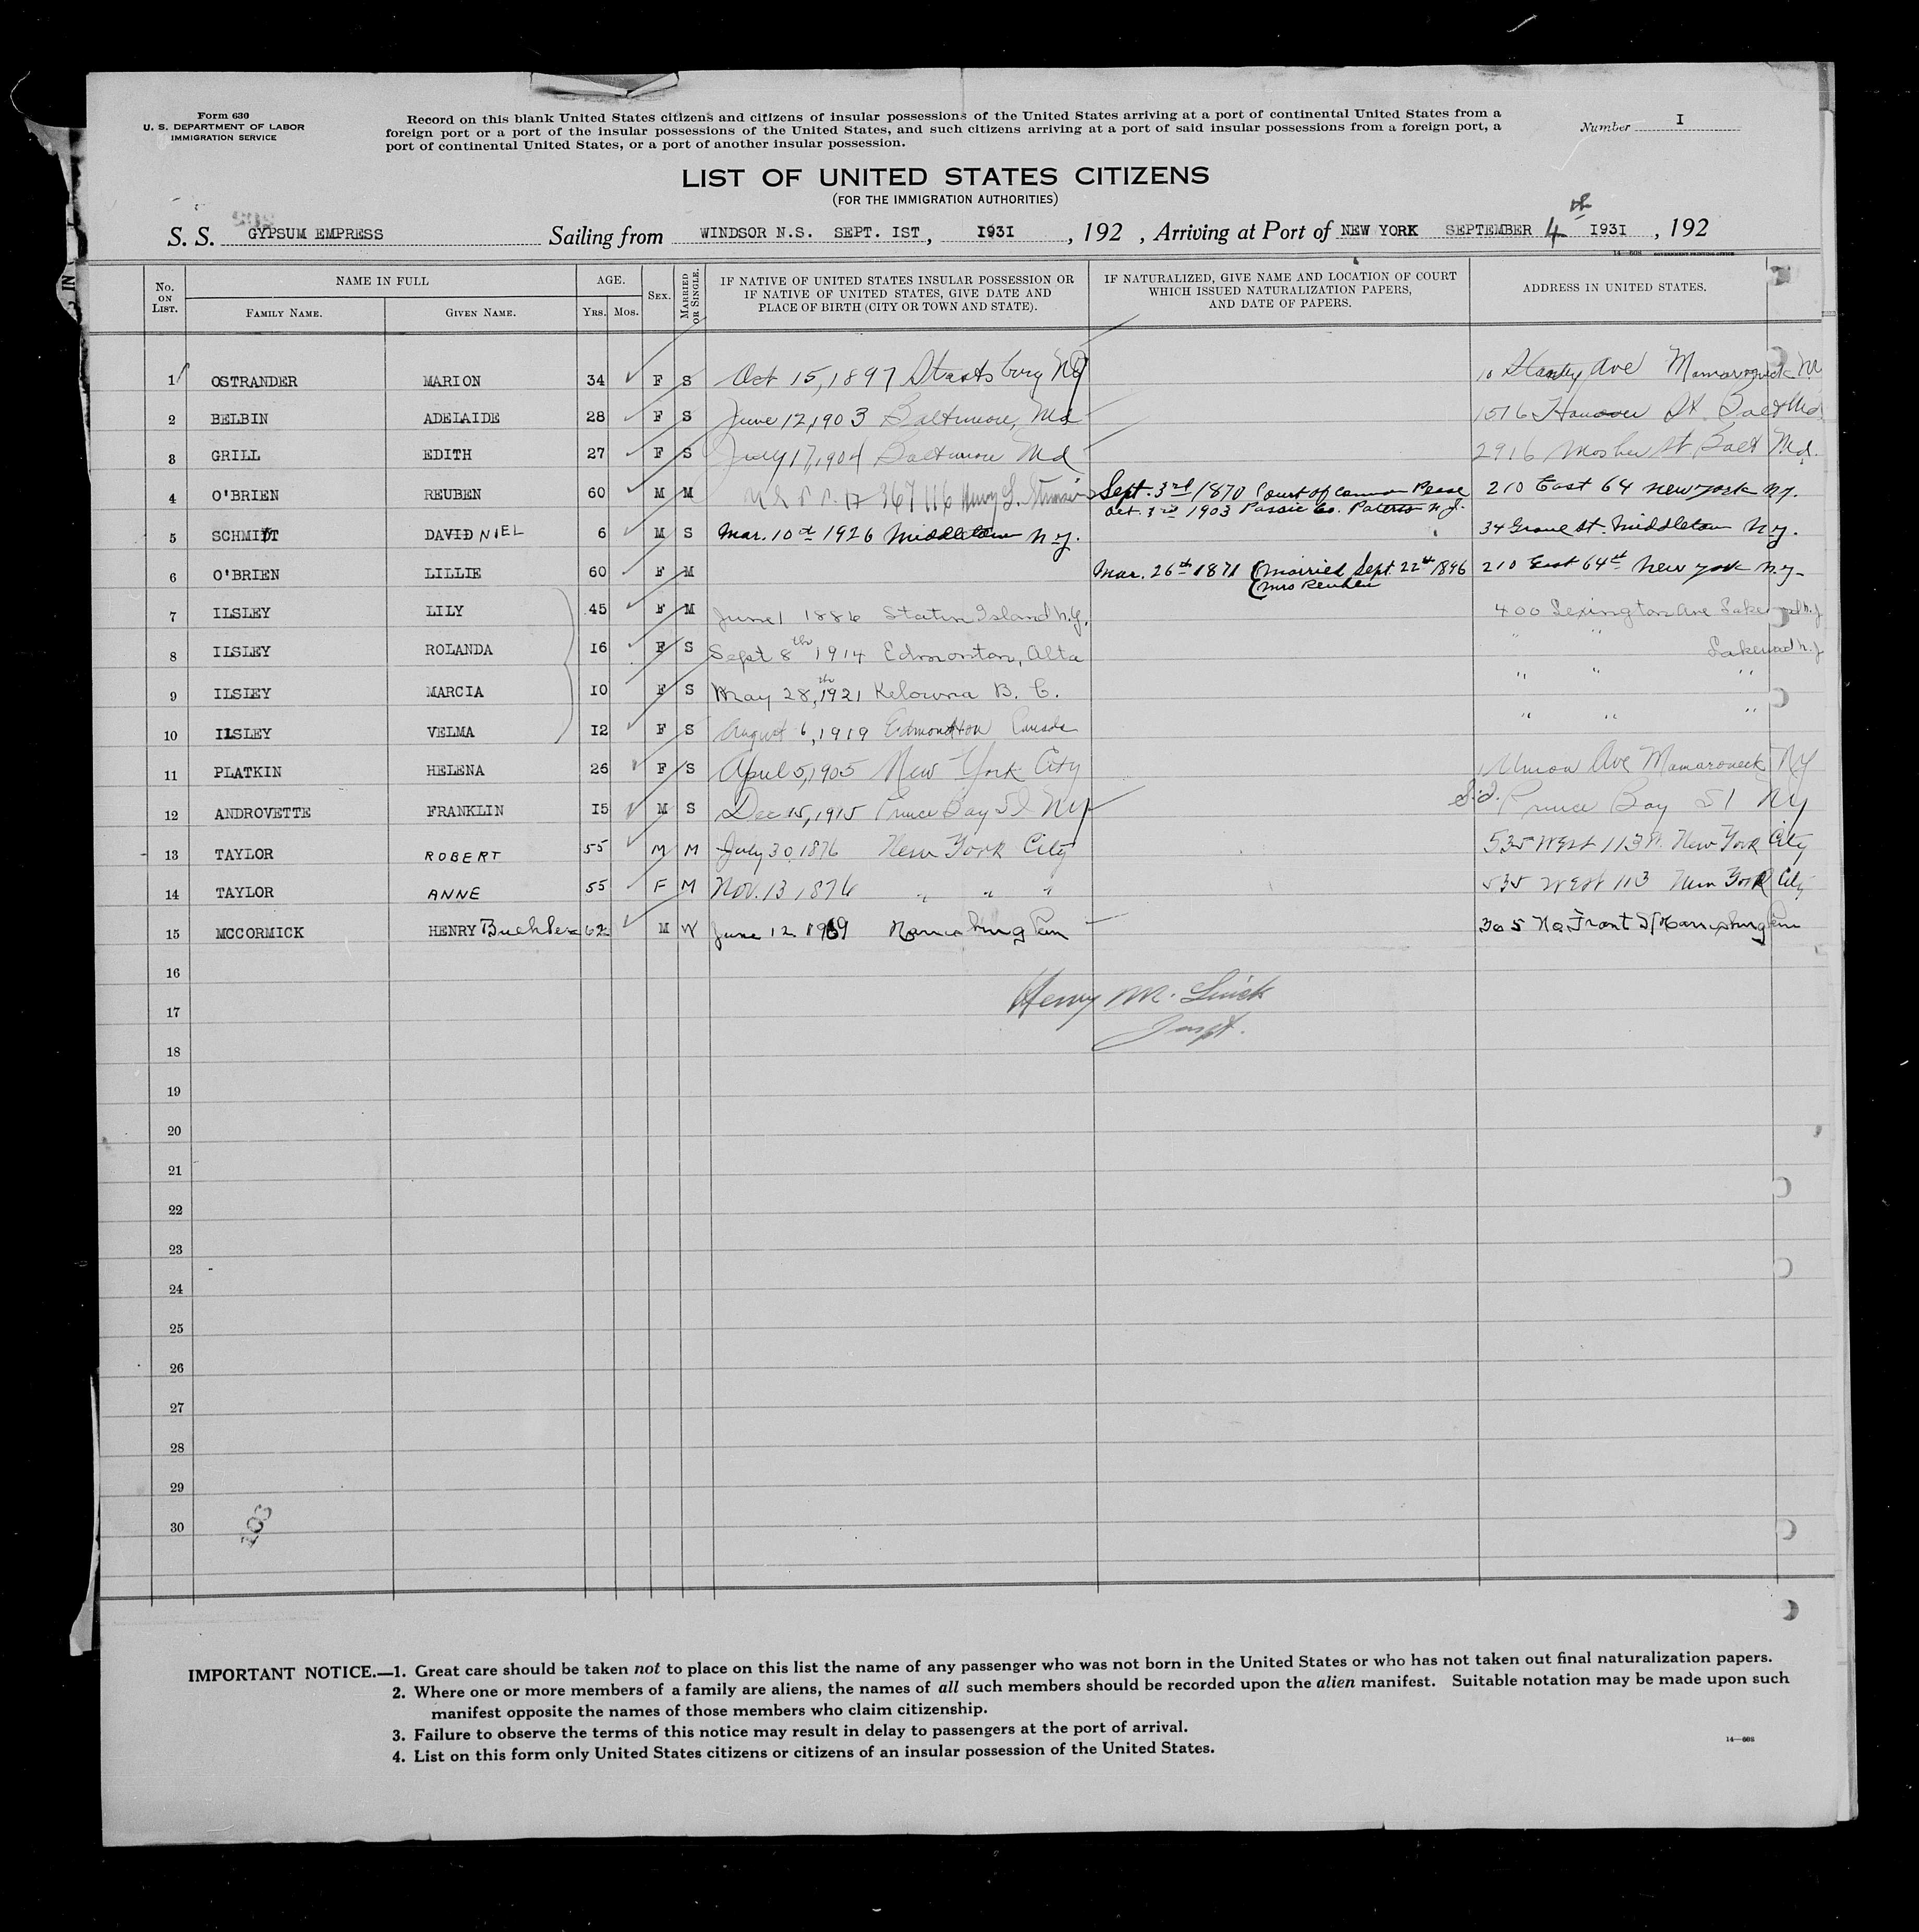 Form 630
U. S. DEPARTMENT OF LABOR
IMMIGRATION SERVICE
Record on this blank United States citizens and citizens of insular possessions of the United States arriving at a port of continental United States from a
foreign port or a port of the insular possessions of the United States, and such citizens arriving at a port of said insular possessions from a foreign port, a
port of continental United States, or a port of another insular possession.
Number I
LIST OF UNITED STATES CITIZENS
(FOR THE IMMIGRATION AUTHORITIES)
S. S. GYPSUM EMPRESS Sailing from WINDSOR N.S. SEPT. IST, I93I, 192 , Arriving at Port of NEW YORK SEPTEMBER 4th I93I , 192
14—608 GOVERNMENT PRINTING OFFICE
No. ON LIST. NAME IN FULL AGE. SEX. MARRIED OR SINGLE. IF NATIVE OF UNITED STATES INSULAR POSSESSION OR IF NATIVE OF UNITED STATES, GIVE DATE AND PLACE OF BIRTH (CITY OR TOWN AND STATE). IF NATURALIZED, GIVE NAME AND LOCATION OF COURT WHICH ISSUED NATURALIZATION PAPERS, AND DATE OF PAPERS. ADDRESS IN UNITED STATES.
FAMILY NAME. GIVEN NAME. YRS. MOS.
1 OSTRANDER MARION 34 F S Oct 15, 1897 Staatsburg NY 10 Stanley Ave Mamaroneck N.Y.
2 BELBIN ADELAIDE 28 F S June 12, 1903 Baltimore, Md 1516 Hanover St Balt Md
3 GRILL EDITH 27 F S July 17, 1904 Baltimore Md 2916 Mosher St Balt Md.
4 O'BRIEN REUBEN 60 M M U S P. P. 367116 Henry L. Stimson Sept. 3rd 1870 Court of Common Pleas 210 East 64 New York N.Y.
Oct. 3rd 1903 Passic Co. Paterson N.J.
5 SCHMIDT DAVIDNIEL 6 M S Mar. 10th 1926 Middletown N.Y. 34 Grove St. Middletown N.Y.
6 O'BRIEN LILLIE 60 F M Mar. 26th 1871 (married Sept. 22nd 1896 210 East 64th New York N.Y.
(Mrs Reuben
7 ILSLEY LILY 45 F M June 1 1886 Staten Island N.Y. 400 Lexington Ave Lakewood N.J.
8 ILSLEY ROLANDA I6 F S Sept 8th 1914 Edmonton, Alta " " Lakewood N.J
9 ILSLEY MARCIA I0 F S May 28th, 1921 Kelowna B. C. " " "
10 ILSLEY VELMA I2 F S August 6, 1919 Edmonton Canada " " "
11 PLATKIN HELENA 26 F S April 5, 1905 New York City Union Ave Mamaroneck NY
12 ANDROVETTE FRANKLIN I5 M S Dec 15, 1915 Prince Bay S I NY S.I. Prince Bay S I NY
13 TAYLOR ROBERT 55 M M July 30, 1876 New York City 535 West 113 St. New York City
14 TAYLOR ANNE 55 F M Nov. 13 1876 " " " 535 West 113 New York City
15 MCCORMICK HENRY Buehler 62 M W June 12 1869 Harrisburg Penn 305 No. Front St Harrisburg Penn
16
Henry M.
17
Inspt.
18
19
20
21
22
23
24
25
26
27
28
29
30
IMPORTANT NOTICE.—1. Great care should be taken not to place on this list the name of any passenger who was not born in the United States or who has not taken out final naturalization papers.
2. Where one or more members of a family are aliens, the names of all such members should be recorded upon the alien manifest. Suitable notation may be made upon such
manifest opposite the names of those members who claim citizenship.
3. Failure to observe the terms of this notice may result in delay to passengers at the port of arrival.
4. List on this form only United States citizens or citizens of an insular possession of the United States.
14—608